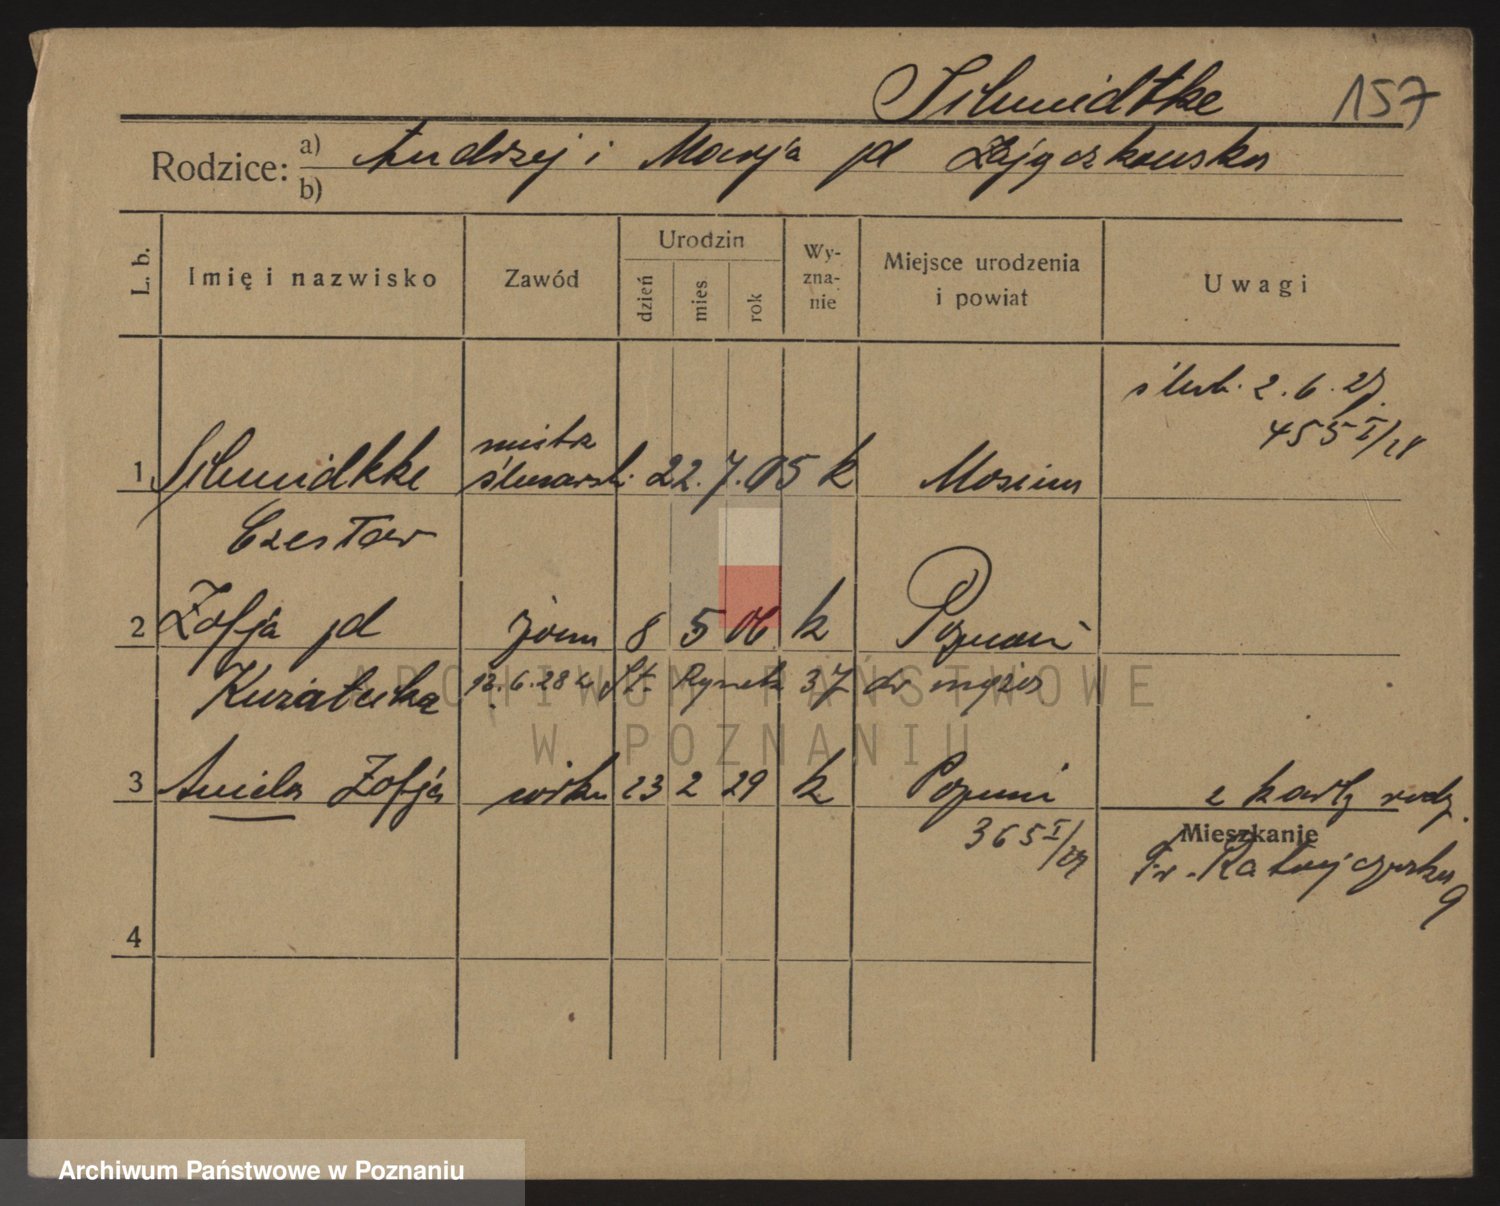 Schmidtke 157
Rodzice: a) Andrzej i Marja pd Zajączkowska
b)
L. b. Imię i nazwisko Zawód Urodzin dzień mies rok Wyznanie Miejsce urodzenia i powiat Uwagi
ślub. 2.6.27.
455 I/28
1 Schmidtke mistrz ślusarski 22.7.05 k Mosina
Czesław
2 Zofja pd żona 8 5 06 k Poznań
12.6.28 z St. Rynek 37 do męża
ARCHIWUM PAŃSTWOWE
W POZNANIU
3 Aniela Zofja córka 23 2 29 k Poznań z karty rodz.
365 I/29
Mieszkanie
Fr. Ratajczaka 9
4
Archiwum Państwowe w Poznaniu